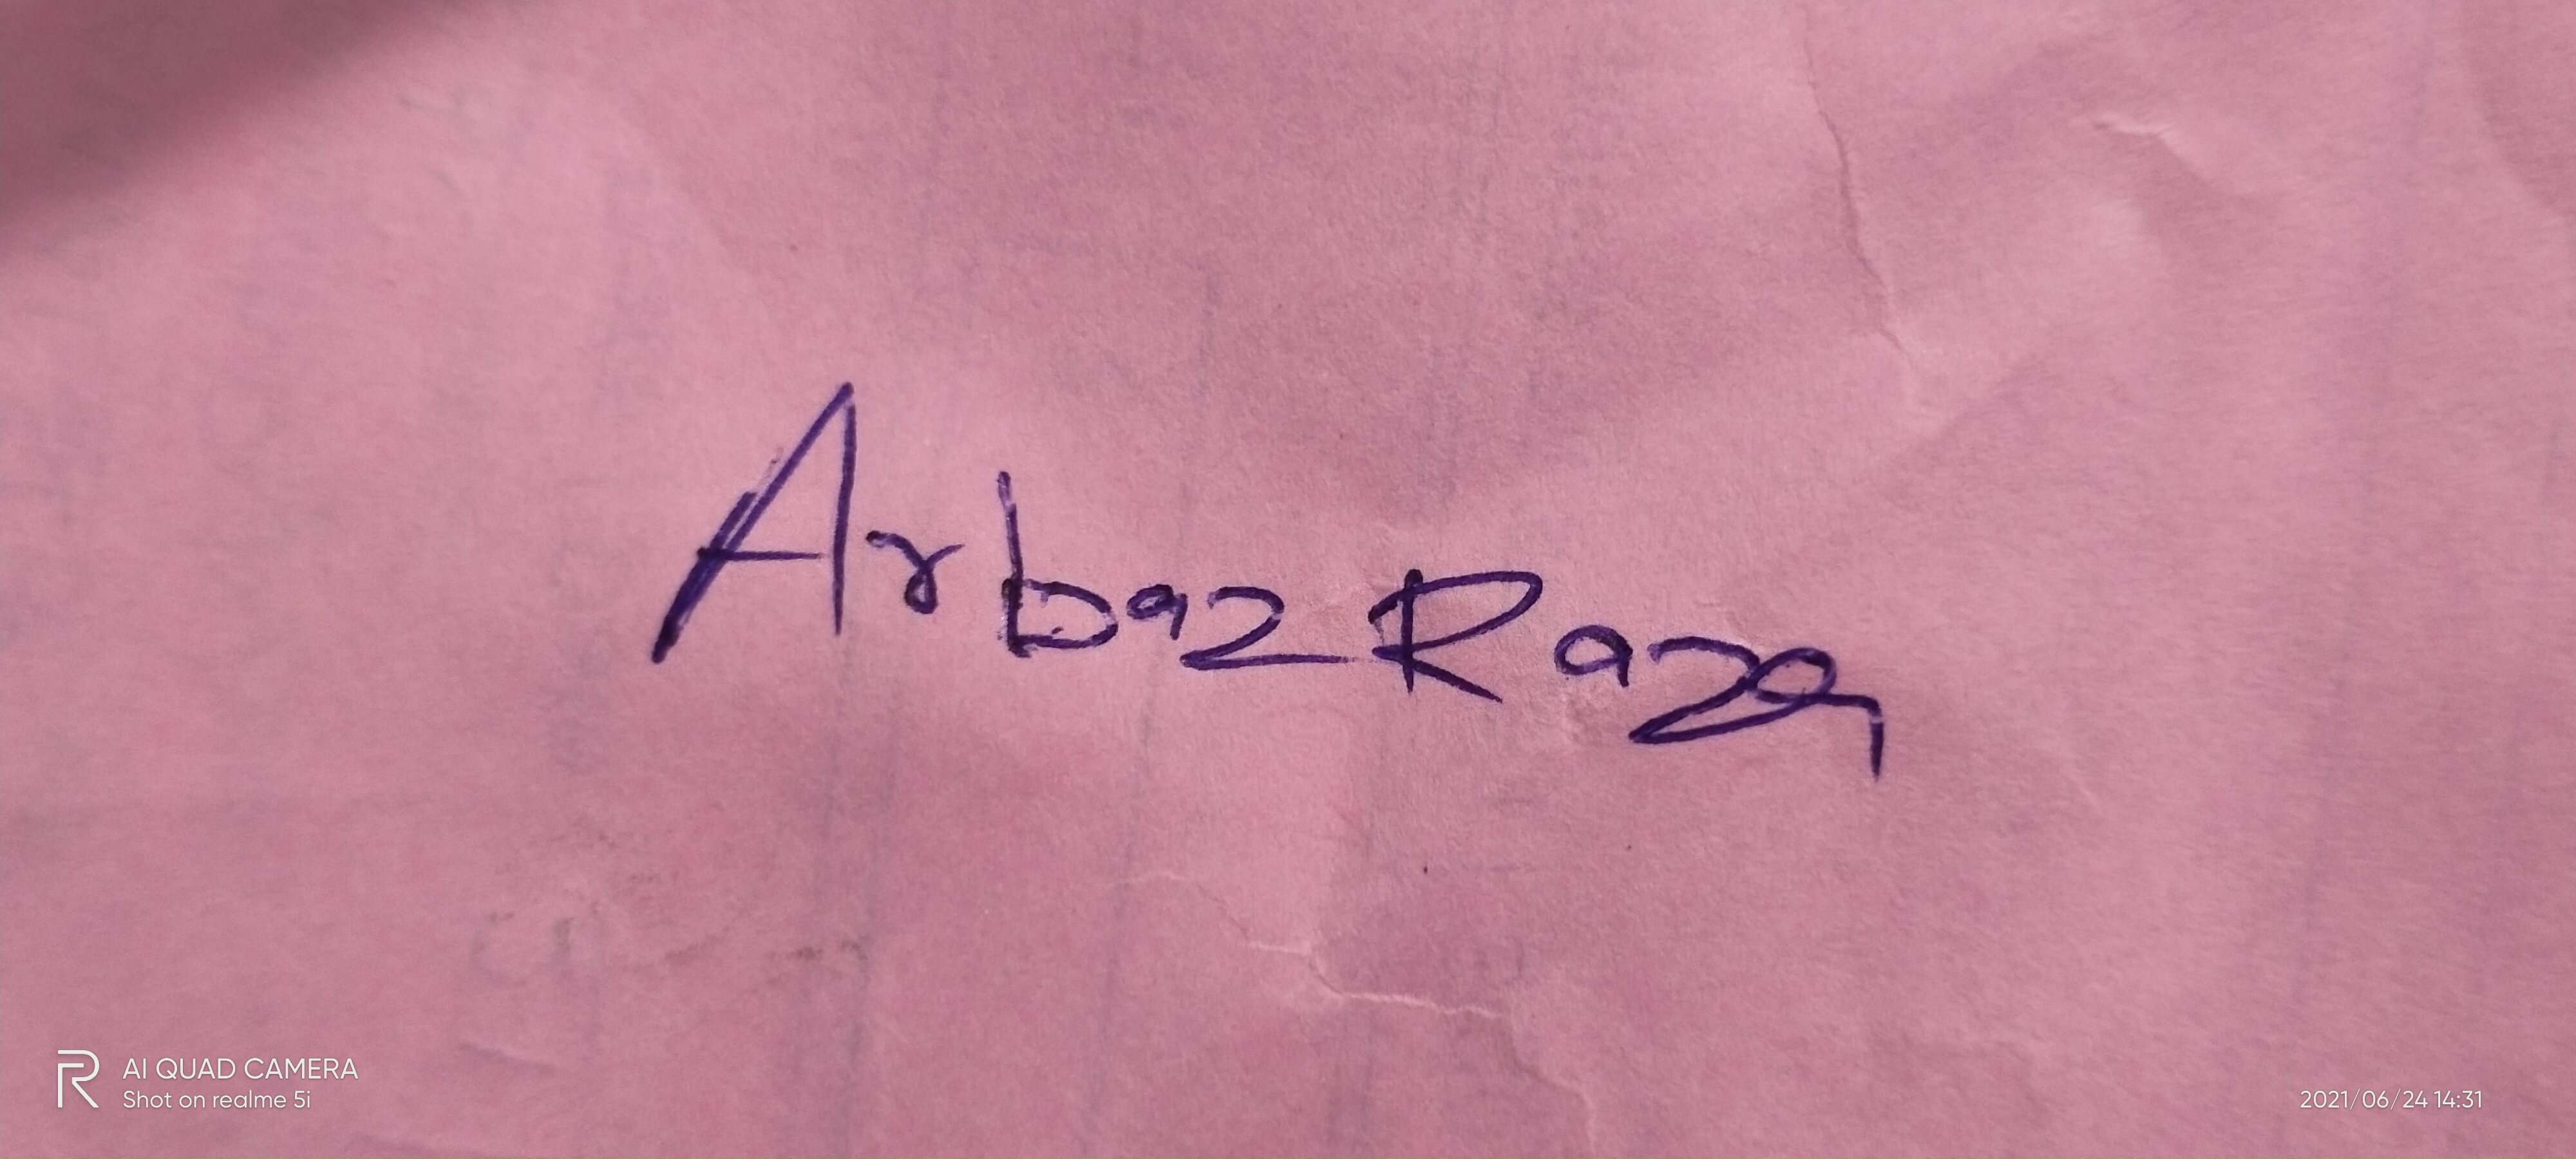 Arbaz Raza
AI QUAD CAMERA
Shot on realme 5i
2021/06/24 14:31